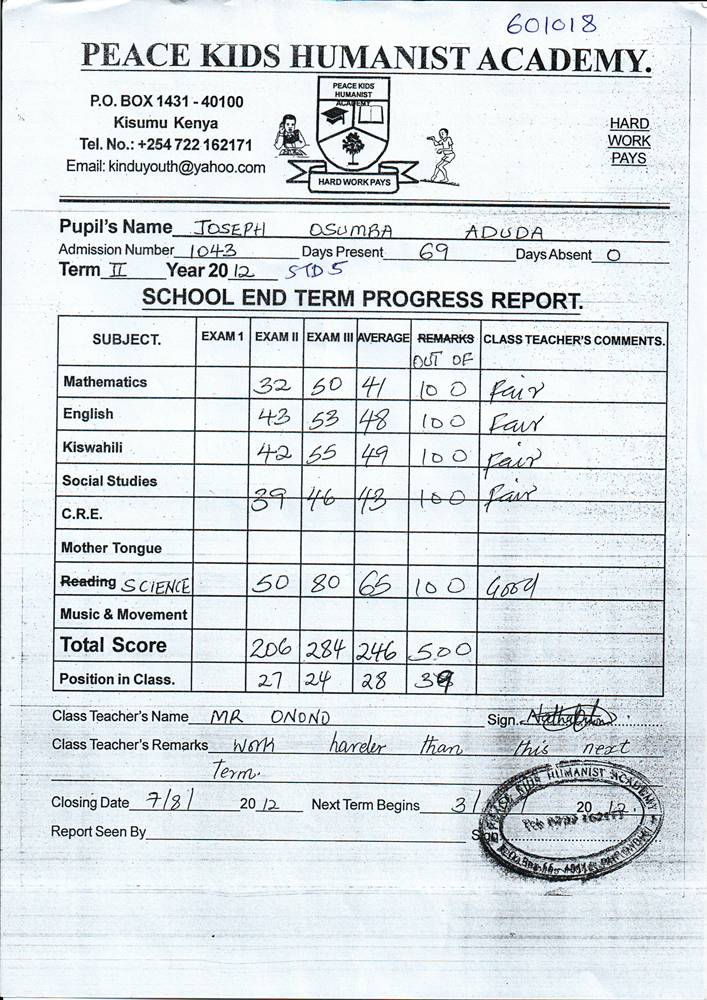 601018
PEACE KIDS HUMANIST ACADEMY.
P.O. BOX 1431 - 40100
Kisumu Kenya
Tel. No.: +254 722 162171
Email: kinduyouth@yahoo.com
PEACE KIDS
HUMANIST
ACADEMY
HARD WORK PAYS
HARD
WORK
PAYS
Pupil's Name JOSEPH OSUMBA ADUDA
Admission Number 1043 Days Present 69 Days Absent 0
Term II Year 2012 STD 5
SCHOOL END TERM PROGRESS REPORT.
SUBJECT. EXAM 1 EXAM II EXAM III AVERAGE REMARKS CLASS TEACHER'S COMMENTS.
OUT OF
Mathematics 32 50 41 100 Fair
English 43 53 48 100 Fair
Kiswahili 42 55 49 100 Fair
Social Studies
39 46 43 100 Fair
C.R.E.
Mother Tongue
Reading SCIENCE 50 80 65 100 Good
Music & Movement
Total Score 206 284 246 500
Position in Class. 27 24 28 39
Class Teacher's Name MR ONONO Sign.
Class Teacher's Remarks Work harder than this next
Term.
Closing Date 7/8/ 2012 Next Term Begins 3/ 2012.
Report Seen By Sign
PEACE KIDS HUMANIST ACADEMY